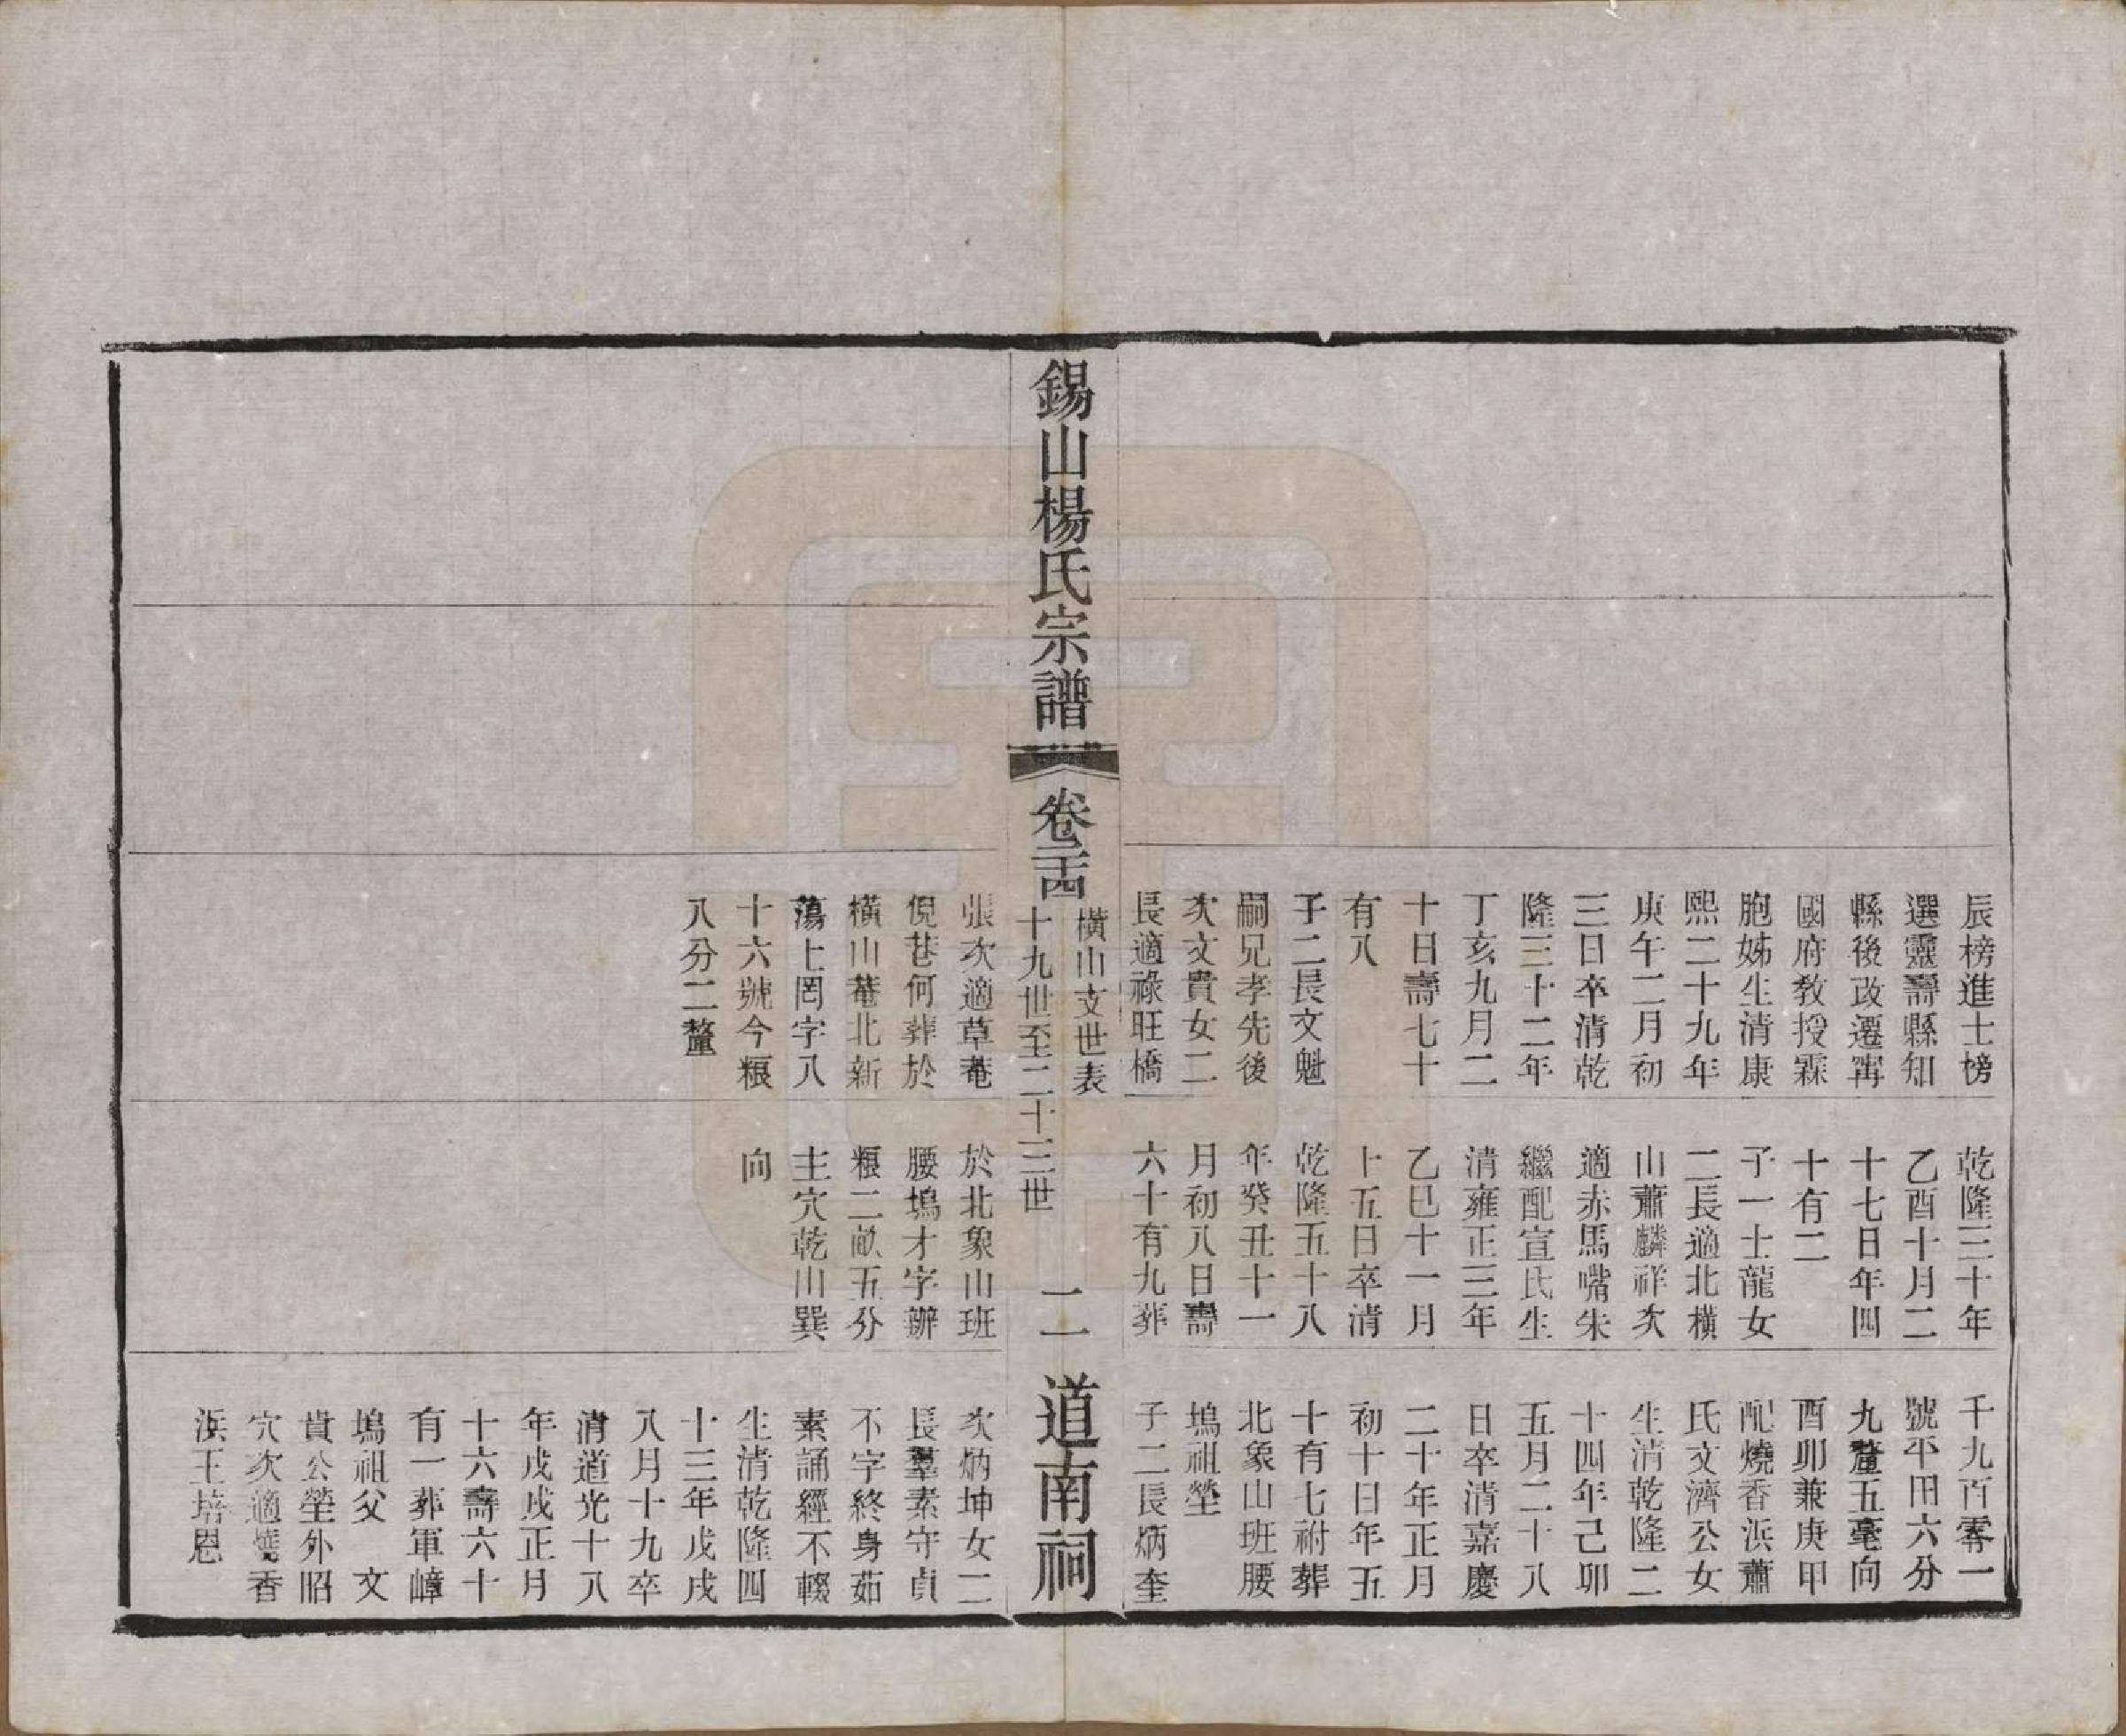 辰榜進士榜
選靈壽縣知
縣後改遷甯
國府敎授霖
胞姊生清康
熙二十九年
庚午二月初
三日卒清乾
隆三十二年
丁亥九月二
十日壽七十
有八
子二長文魁
嗣兄孝先後
次文貴女二
長適祿旺橋
乾隆三十年
乙酉十月二
十七日年四
十有二
子一士龍女
二長適北橫
山蕭麟祥次
適赤馬嘴朱
繼配宣氏生
清雍正三年
乙巳十一月
十五日卒清
乾隆五十八
年癸丑十一
月初八日壽
六十有九葬
千九百零一
號平田六分
九釐五毫向
酉卯兼庚甲
配燒香浜蕭
氏文濟公女
生清乾隆二
十四年己卯
五月二十八
日卒清嘉慶
二十年正月
初十日年五
十有七祔葬
北象山班腰
塢祖塋
子二長炳奎
錫山楊氏宗譜
卷二十四
橫山支世表
十九世至二十三世
二
道南祠
張次適草菴
倪巷何葬於
橫山菴北新
蕩上罔字八
十六號今粮
八分二釐
於北象山班
腰塢才字辦
粮二畝五分
主穴乾山巽
向
次炳坤女二
長羣素守貞
不字終身茹
素誦經不輟
生清乾隆四
十三年戊戌
八月十九卒
清道光十八
年戊戌正月
十六壽六十
有一葬軍嶂
塢祖父 文
貴公塋外昭
穴次適燒香
浜王培恩